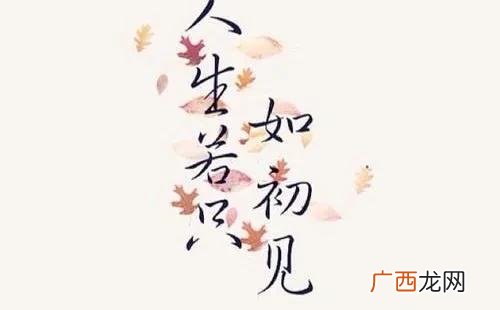 人生若只
如初见
广西龙网